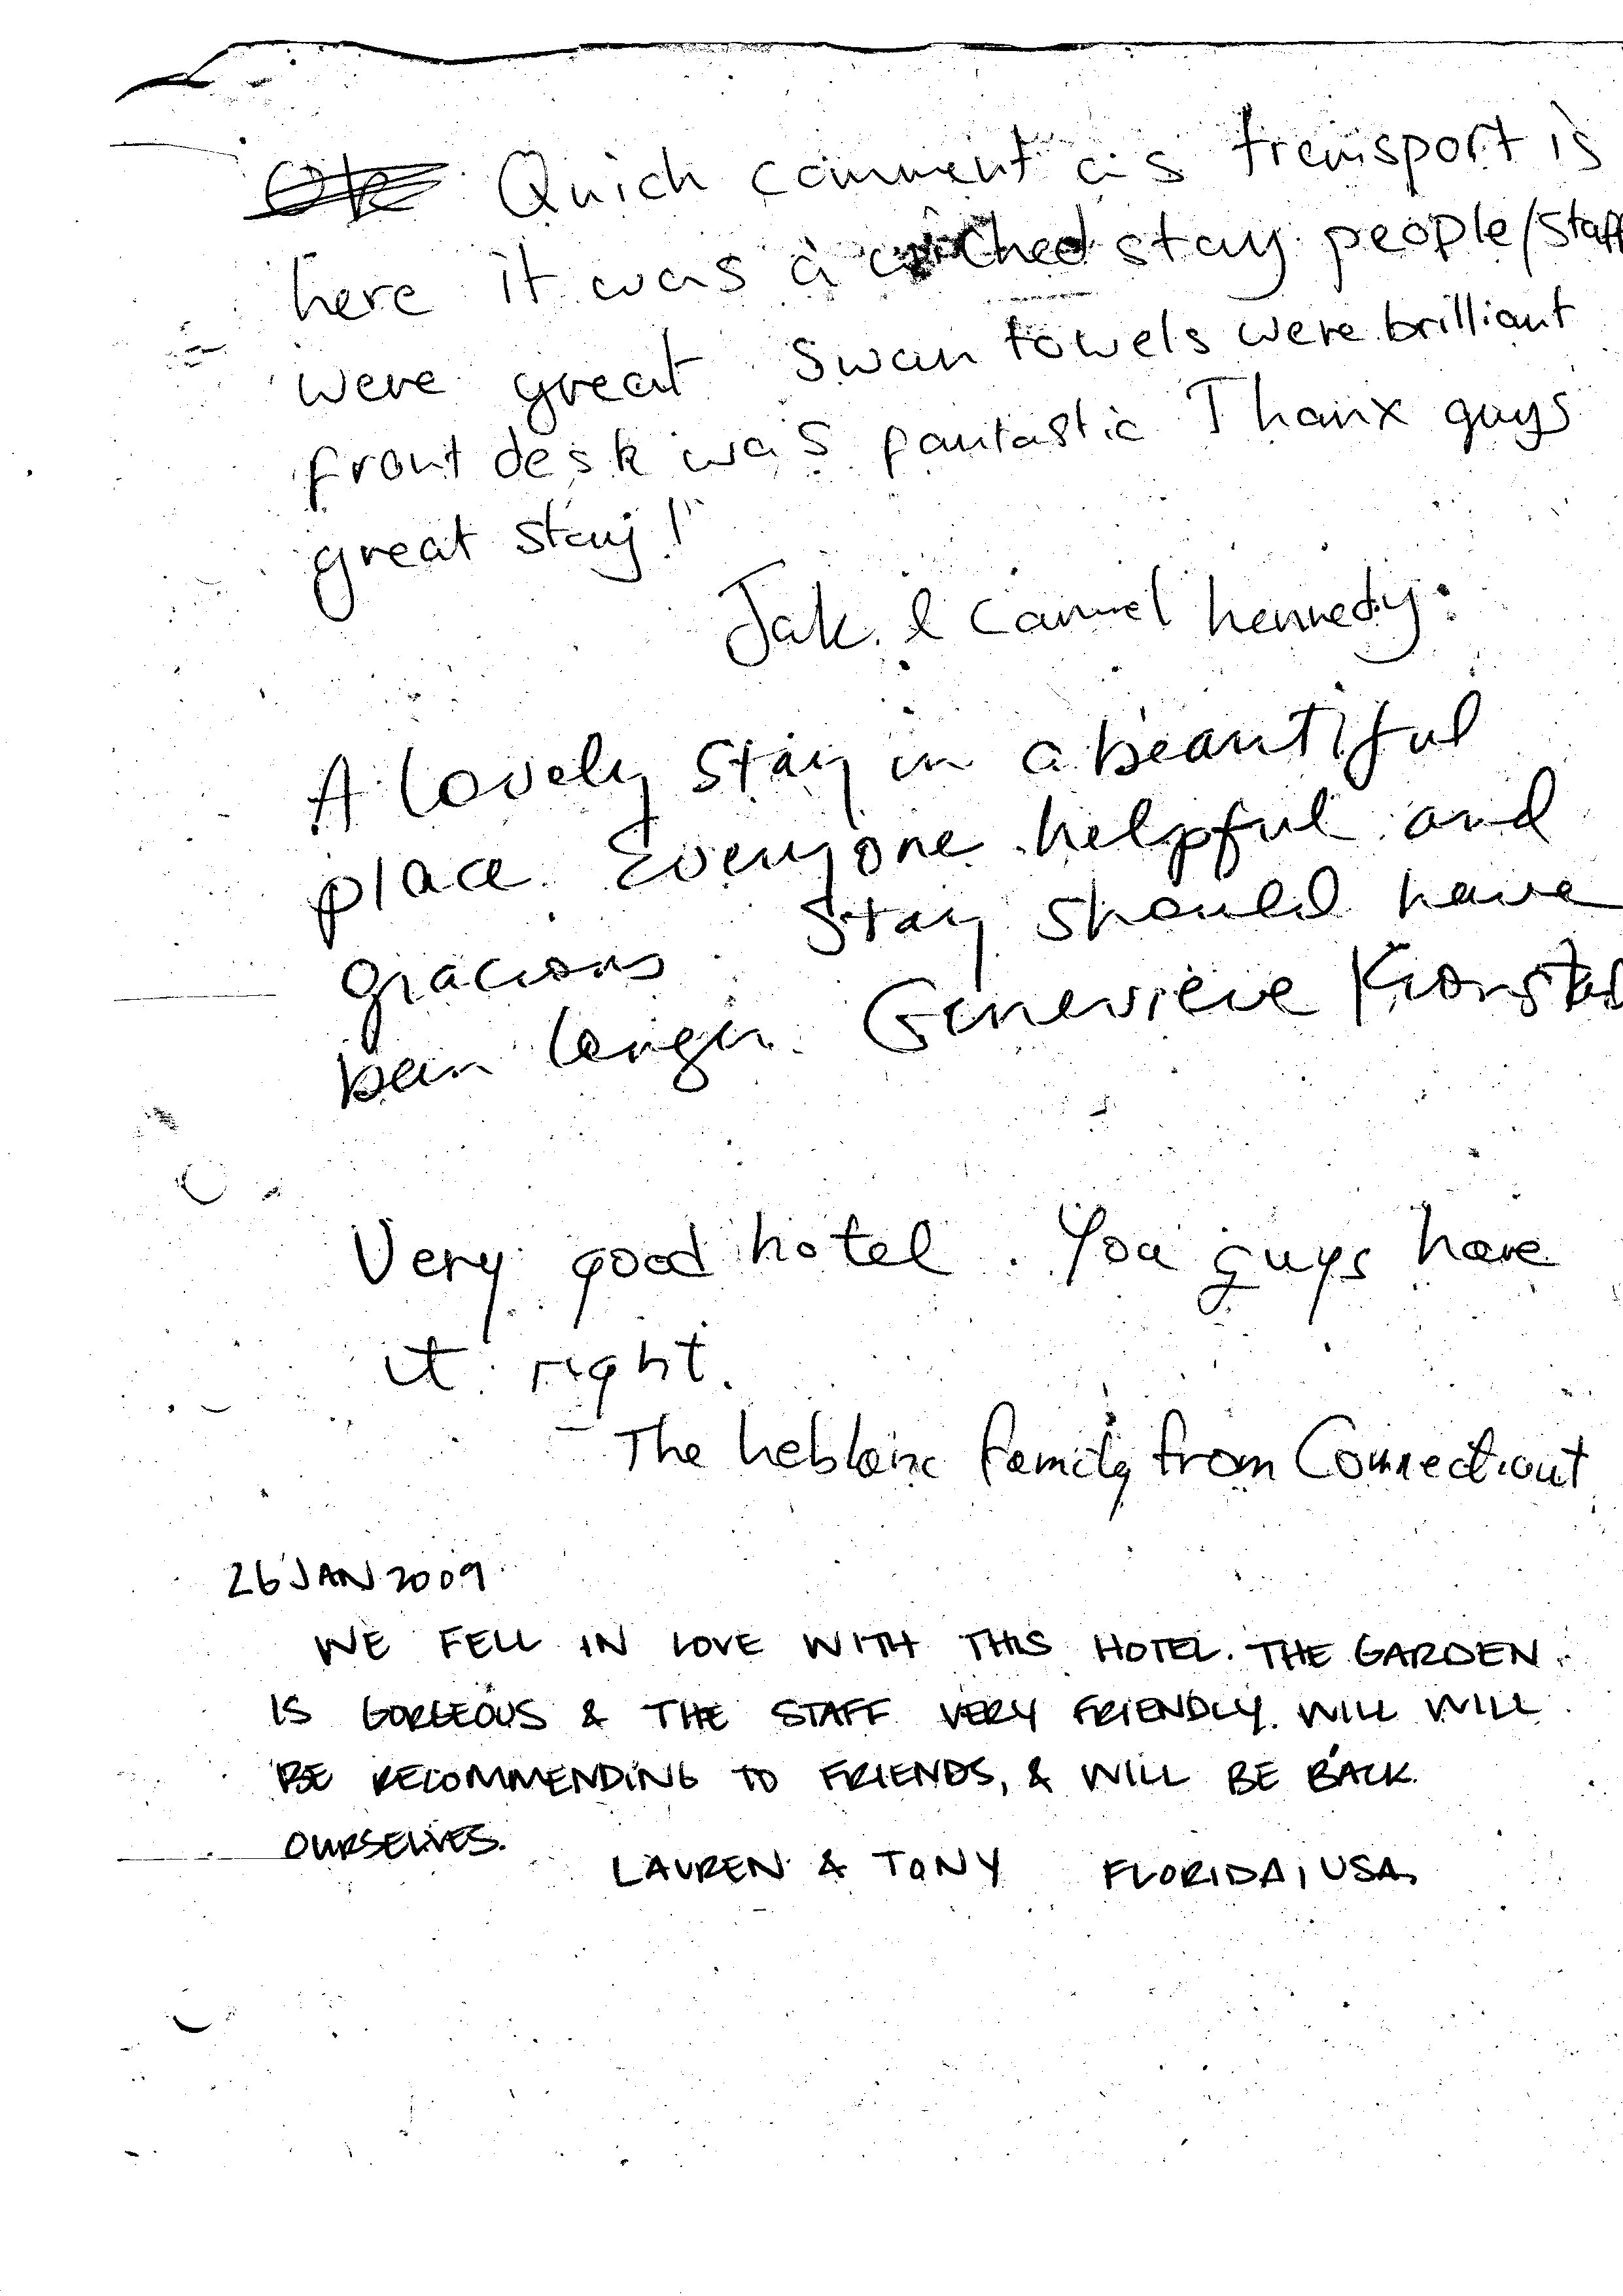 Quick comment as transport is
here it was a stay people/staff
were great swan towels were brilliant
front desk was fantastic Thanx guys
great stay!
Jak & Carmel Kennedy.
A lovely stay in a beautiful
place. Everyone helpful and
gracious. Stay should have
been longer. Genevieve
Very good hotel. You guys have
it right.
- The Leblanc family from Connecticut
26 JAN 2009
WE FELL IN LOVE WITH THIS HOTEL. THE GARDEN
IS GORGEOUS & THE STAFF VERY FRIENDLY. WILL WILL
BE RECOMMENDING TO FRIENDS, & WILL BE BACK
OURSELVES.
LAUREN & TONY FLORIDA, USA